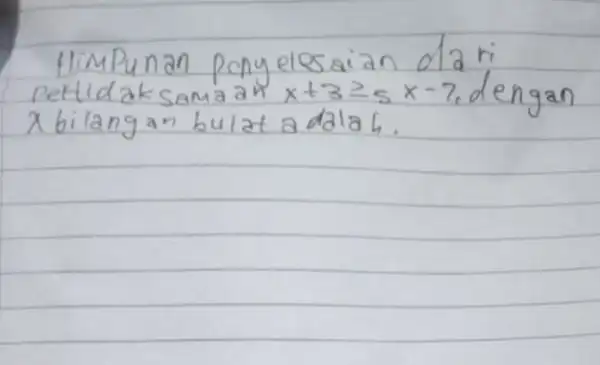 Himpunan penyelesaian dari
pertidaksamaan x + 3 ≥ 5 x - 7, dengan
x bilangan bulat adalah.